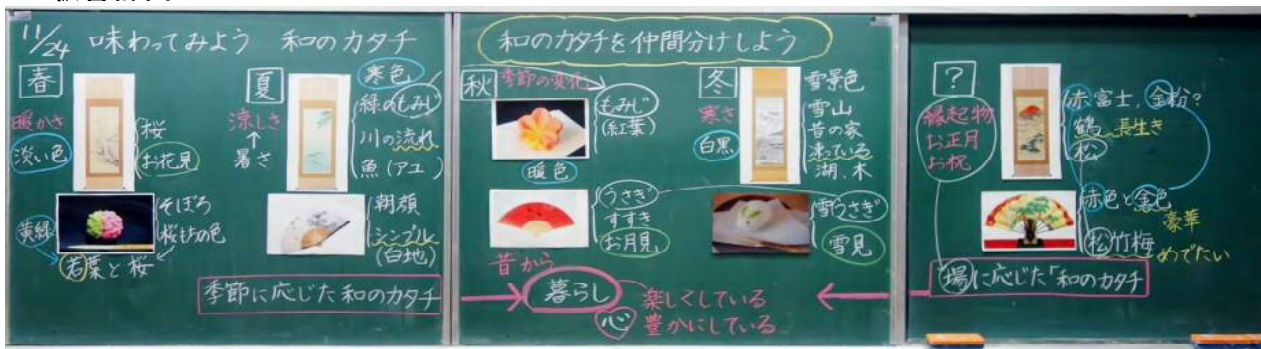 11/24 味わってみよう 和のカタチ
春
暖かさ
淡い色
桜
お花見
黄緑
そぼろ
桜もちの色
若葉と桜
夏
涼しさ
↑
暑さ
寒色
緑のもみじ
川の流れ
魚(アユ)
朝顔
シンプル
(白地)
季節に応じた和のカタチ
和のカタチを仲間分けしよう
秋
季節の変化
もみじ
(紅葉)
暖色
うさぎ
すすき
お月見
冬
寒さ
白黒
雪景色
雪山
昔の家
凍っている
湖、木
雪うさぎ
雪見
昔から
暮らし
心
楽しくしている
豊かにしている
?
縁起物
お正月
お祝
赤富士、金粉?
鶴 長生き
松
赤色と金色
豪華
松竹梅
めでたい
場に応じた「和のカタチ